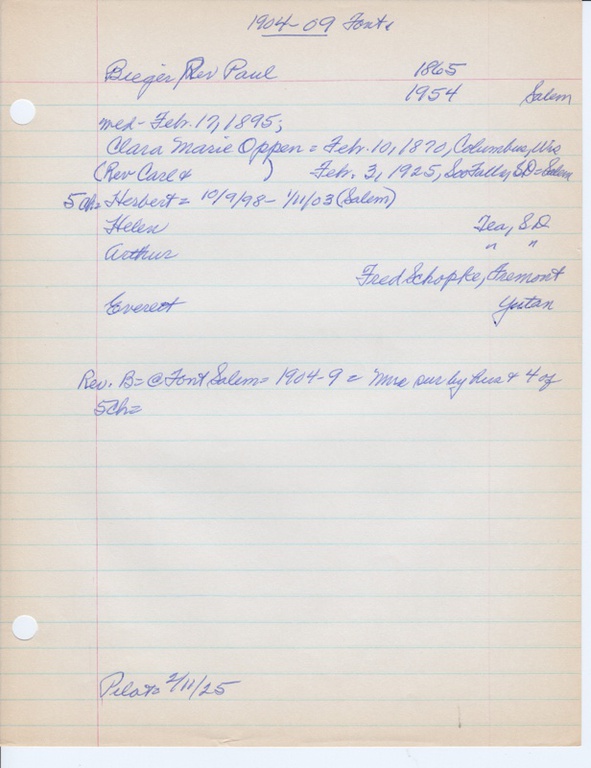 1904-09 Font
Bieger, Rev Paul 1865
1954 Salem
med - Feb. 17, 1895;
Clara Marie Oppen = Feb. 10, 1870, Columbus, Wis
(Rev Carl & ) Feb. 3, 1925, Soo Falls, SD = Salem
5 Ch = Herbert = 10/9/98 - 1/11/03 (Salem)
Helen Tea, S.D.
Arthur " "
Fred Schopke, Fremont
Everett Yutan
Rev. B = @ Font Salem = 1904-9 = Mrs sur by hus & 4 of
5 Ch =
Pilot = 2/11/25